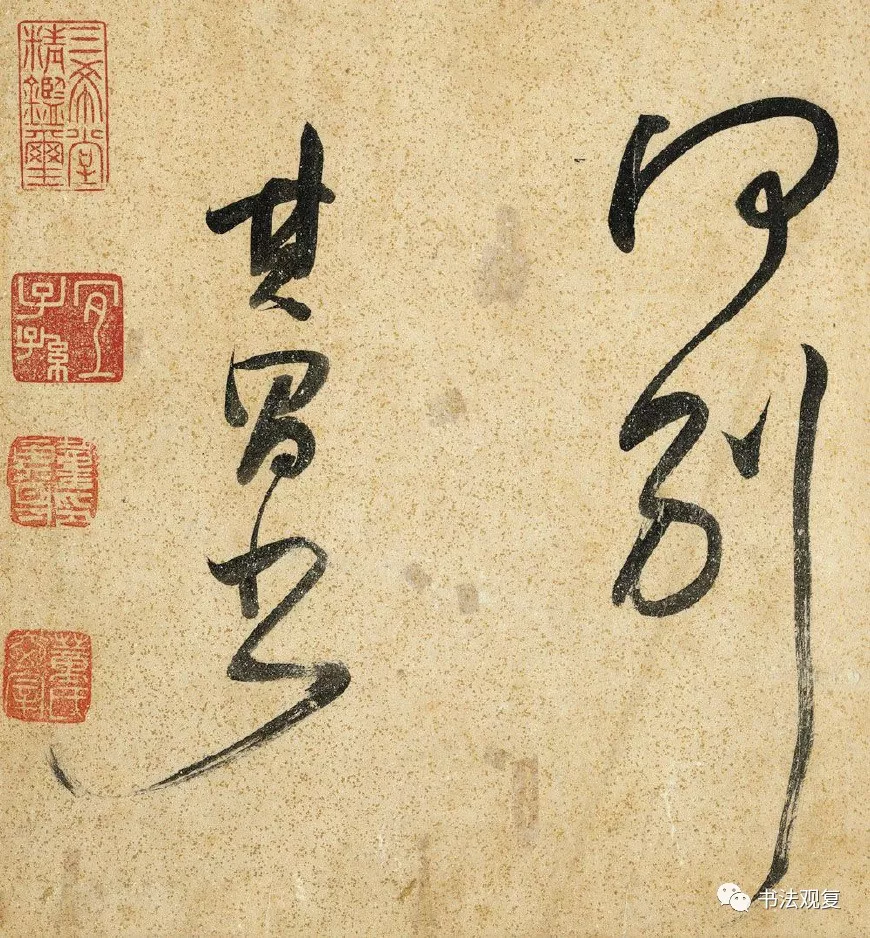 何別
其昌書
三希堂
精鑑璽
宜
子孫
书法观复